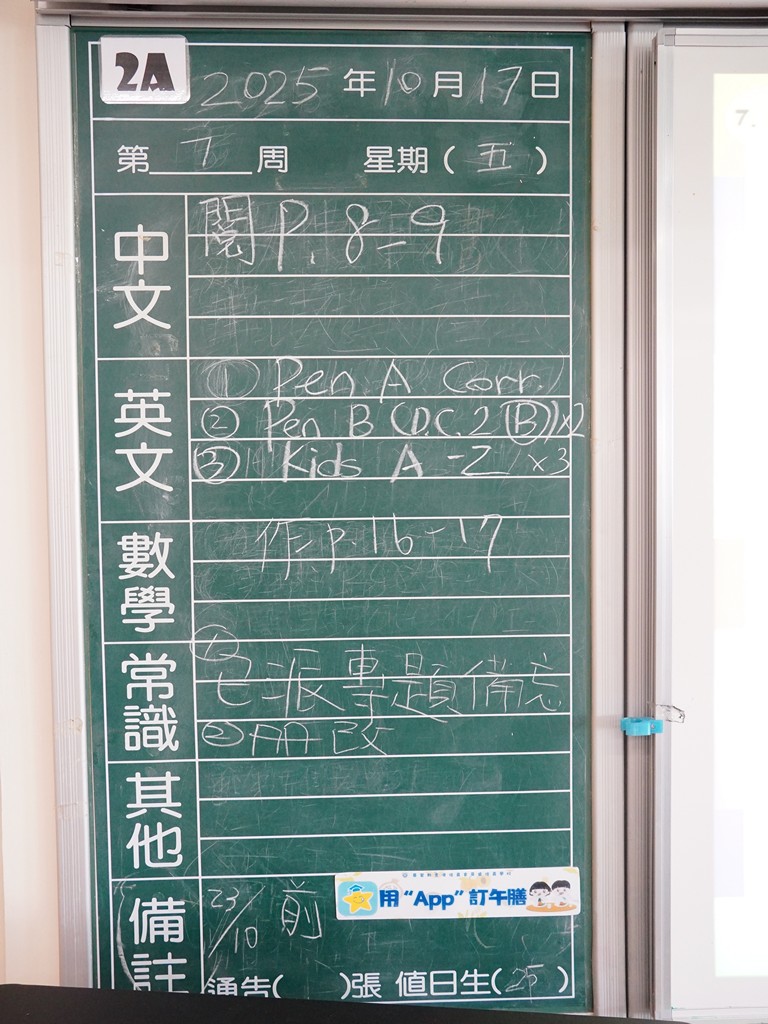 2A
2025年10月17日
第7周 星期(五)
中文
閱P.8-9
英文
① Pen A Corr.
② Pen B (D.C.2 Ⓑ)x2
③ Kids A-Z x3
數學
作:P.16-17
常識
①已派專題備忘
②AA改
其他
用“App”訂午膳
備註
23/10 前
通告( )張 值日生(25)
7.